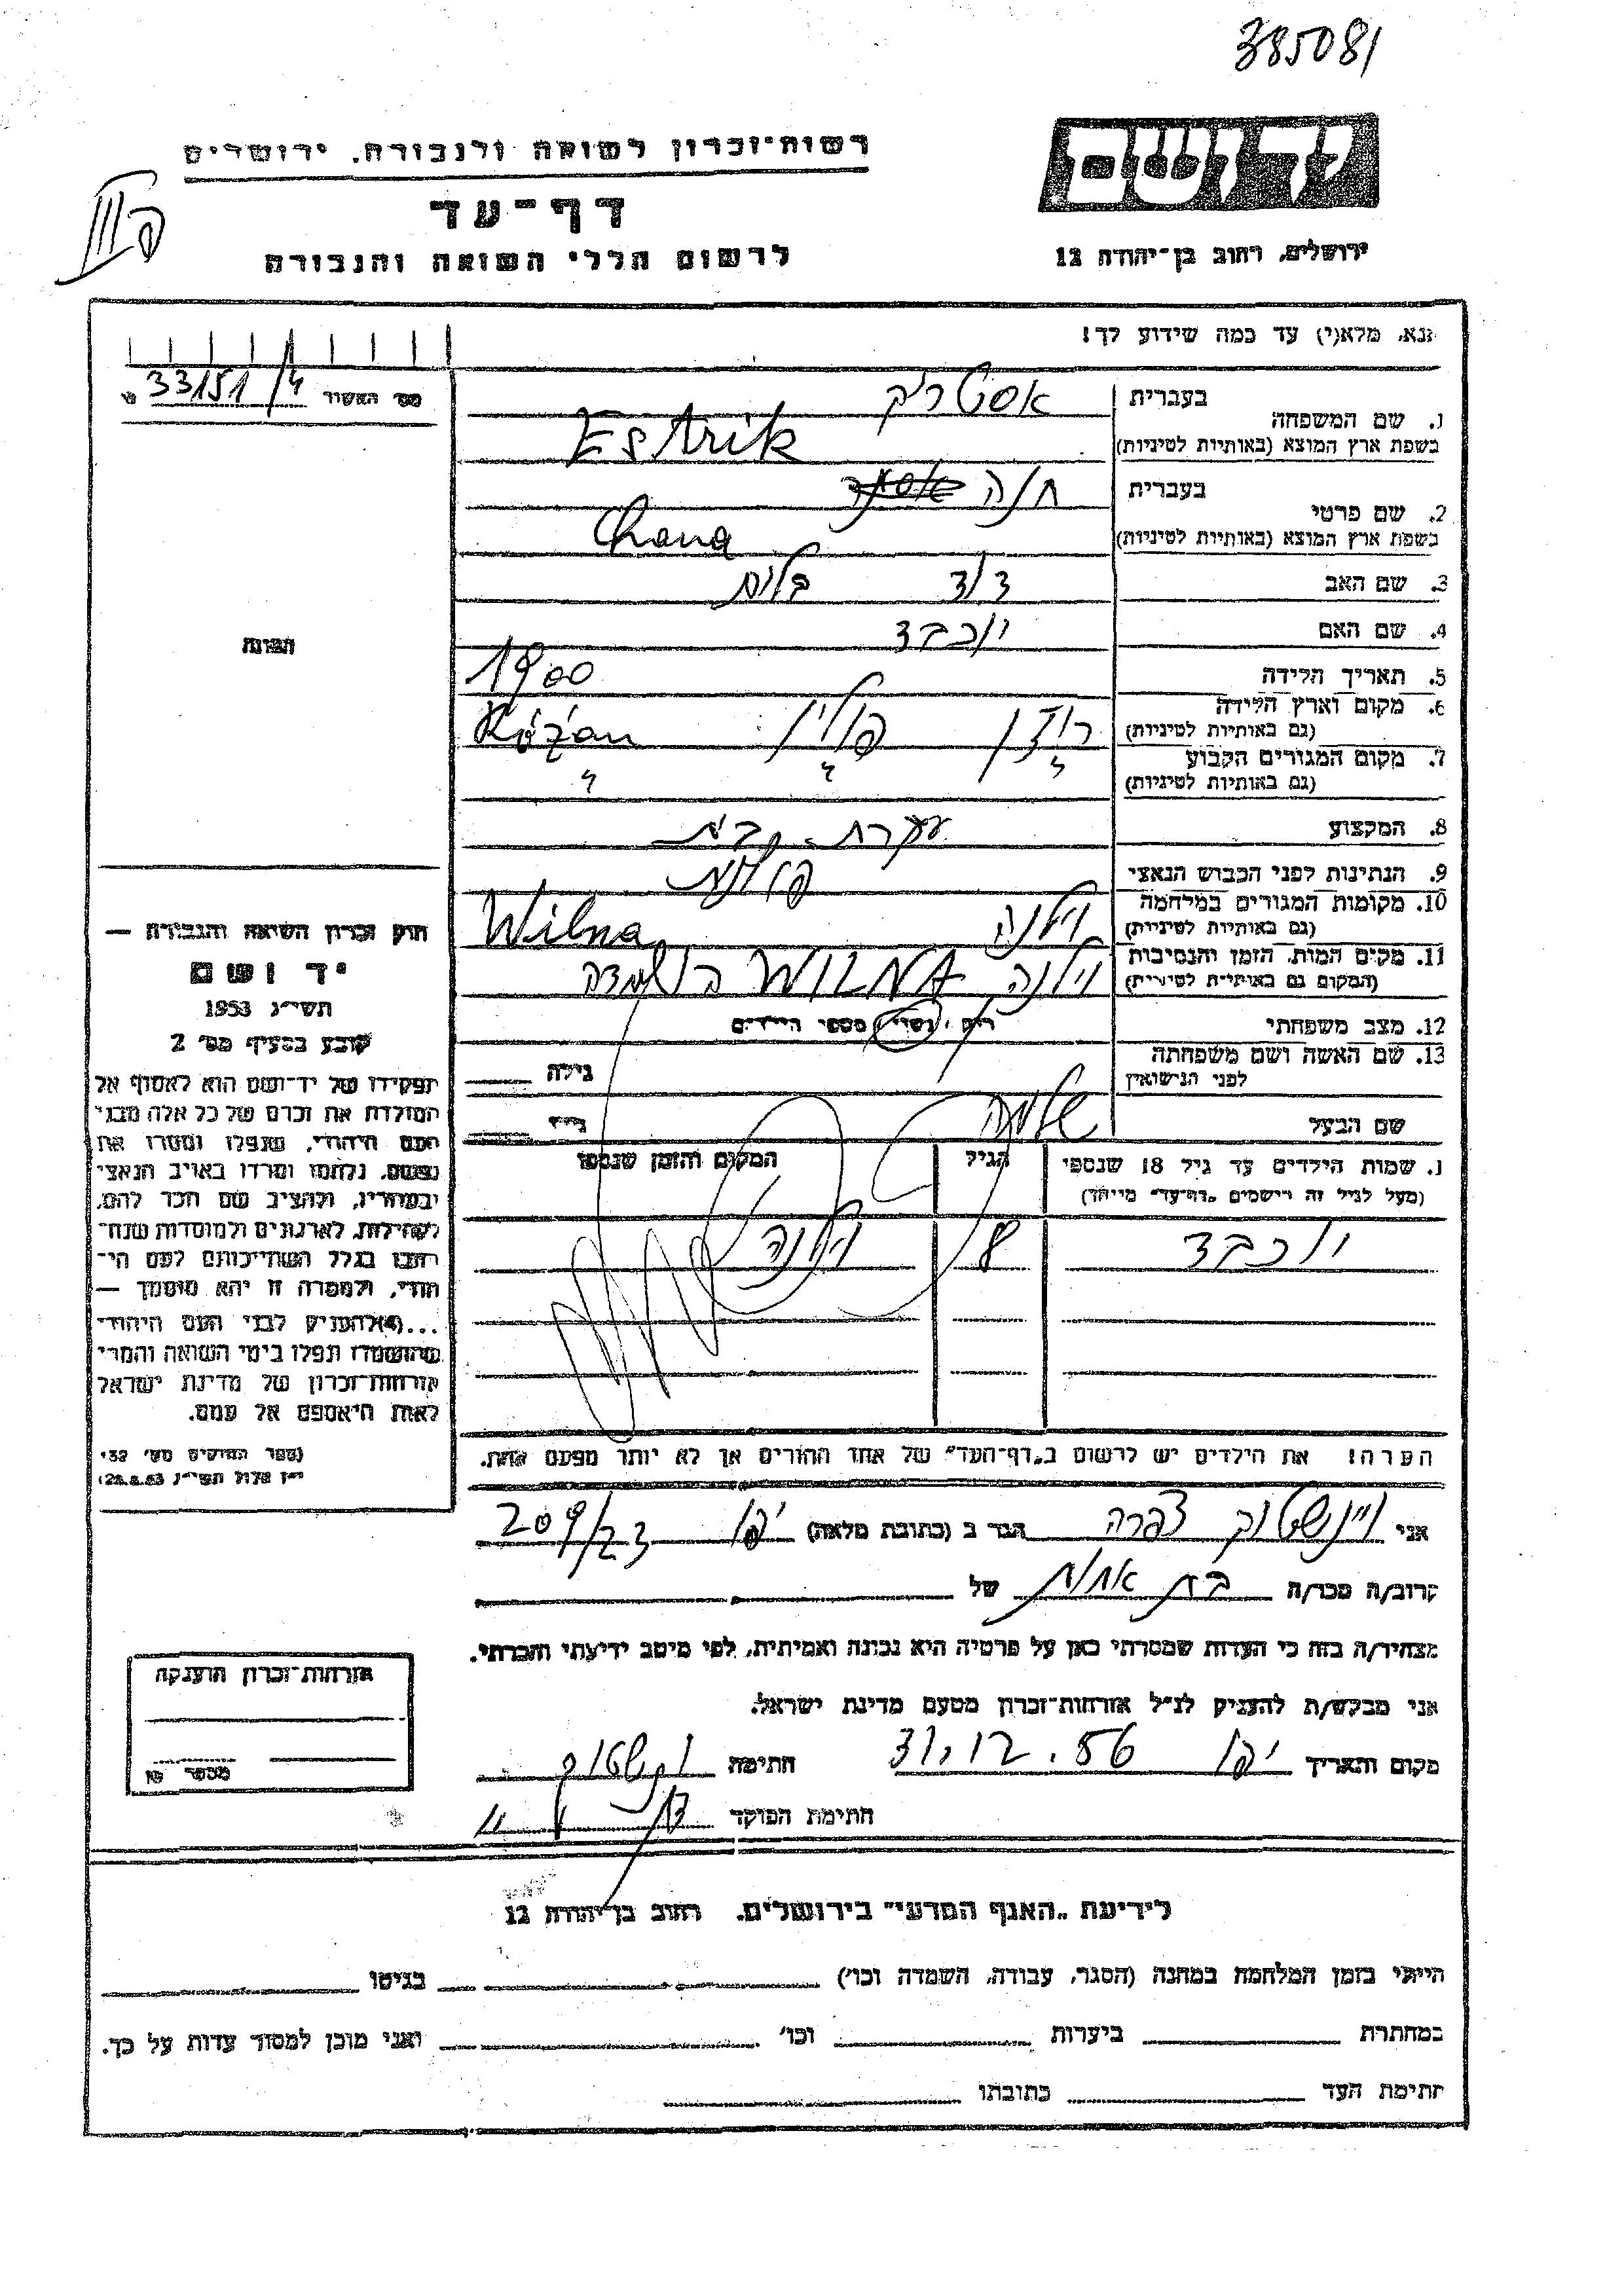 385081
רשות־זכרון לשואה ולגבורה, ירושלים
דף־עד
לרשום חללי השואה והגבורה
ירושלים, רחוב בן־יהודה 12
נא, מלא(י) עד כמה שידוע לך!
מס׳ האשור 33151/4
1. שם המשפחה בעברית אסטריק
בשפת ארץ המוצא (באותיות לטיניות) Estrik
2. שם פרטי בעברית חנה
בשפת ארץ המוצא (באותיות לטיניות) Chana
3. שם האב דוד בלום
4. שם האם יוכבד
5. תאריך הלידה 1900
6. מקום וארץ הלידה (גם באותיות לטיניות) רוז'ן פולין Różan
7. מקום המגורים הקבוע (גם באותיות לטיניות) " " "
8. המקצוע עקרת-בית
9. הנתינות לפני הכבוש הנאצי פולנית
10. מקומות המגורים במלחמה (גם באותיות לטיניות) וילנה Wilna
11. מקום המות, הזמן והנסיבות (המקום גם באותיות לטיניות) וילנה WILNA בהשמדה
12. מצב משפחתי רוק / נשוי / מספר הילדים
13. שם האשה ושם משפחתה לפני הנישואין גילה
שם הבעל שלמה גילו
שמות הילדים עד גיל 18 שנספו הגיל המקום והזמן שנספו
(מעל לגיל זה רושמים „דף־עד" מיוחד)
יוכבד 8 וילנה
הערה! את הילדים יש לרשום ב„דף־העד" של אחד ההורים אך לא יותר מפעם אחת.
תמונה
חוק זכרון השואה והגבורה —
יד ושם
תשי״ג 1953
קובע בסעיף מס׳ 2
תפקידו של יד־ושם הוא לאסוף אל
המולדת את זכרם של כל אלה מבני
העם היהודי, שנפלו ומסרו את
נפשם, נלחמו ומרדו באויב הנאצי
ובעוזריו, ולהציב שם וזכר להם,
לקהילות, לארגונים ולמוסדות שנח־
רבו בגלל השתייכותם לעם הי־
הודי, ולמטרה זו יהא מוסמך —
...(4) להעניק לבני העם היהודי
שהושמדו ונפלו בימי השואה והמרי
אזרחות־זכרון של מדינת ישראל
לאות היאספם אל עמם.
(ספר החוקים מס׳ 132
י״ז אלול תשי״ג 28.8.53)
אני ויינשטוק צפרה הגר ב (כתובת מלאה) יפו ג 209/23
קרוב/ה מכר/ה בת אחות של
מצהיר/ה בזה כי העדות שמסרתי כאן על פרטיה היא נכונה ואמיתית, לפי מיטב ידיעתי והכרתי.
אני מבקש/ת להעניק לנ״ל אזרחות־זכרון מטעם מדינת ישראל.
מקום ותאריך יפו 31.12.56 חתימה
חתימת הפוקד
אזרחות־זכרון הוענקה
מספר
לידיעת „האגף המדעי" בירושלים, רחוב בן־יהודה 12
הייתי בזמן המלחמה במחנה (הסגר, עבודה, השמדה וכו׳) בגיטו
במחתרת ביערות וכו׳ ואני מוכן למסור עדות על כך.
חתימת העד כתובתו